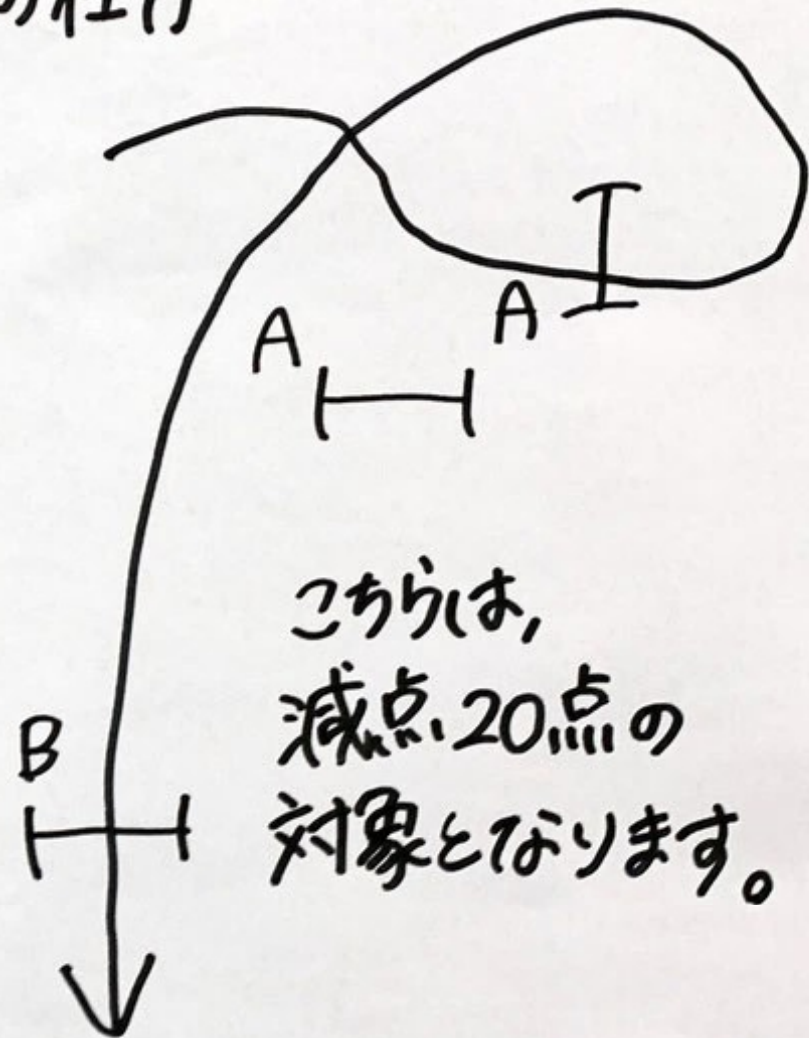 A
A
B
こちらは,
減点20点の
対象となります。